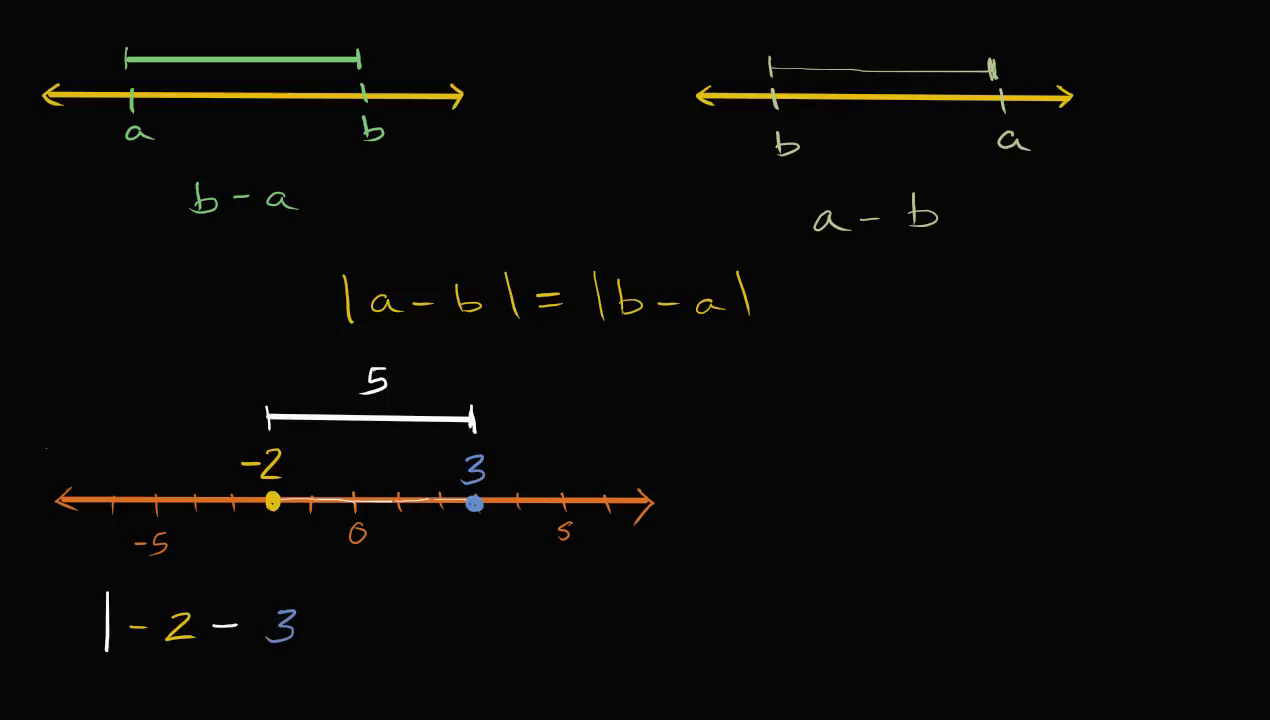 a b
b a
b - a
a - b
|a - b| = |b - a|
5
-2 3
-5 0 5
|-2 - 3